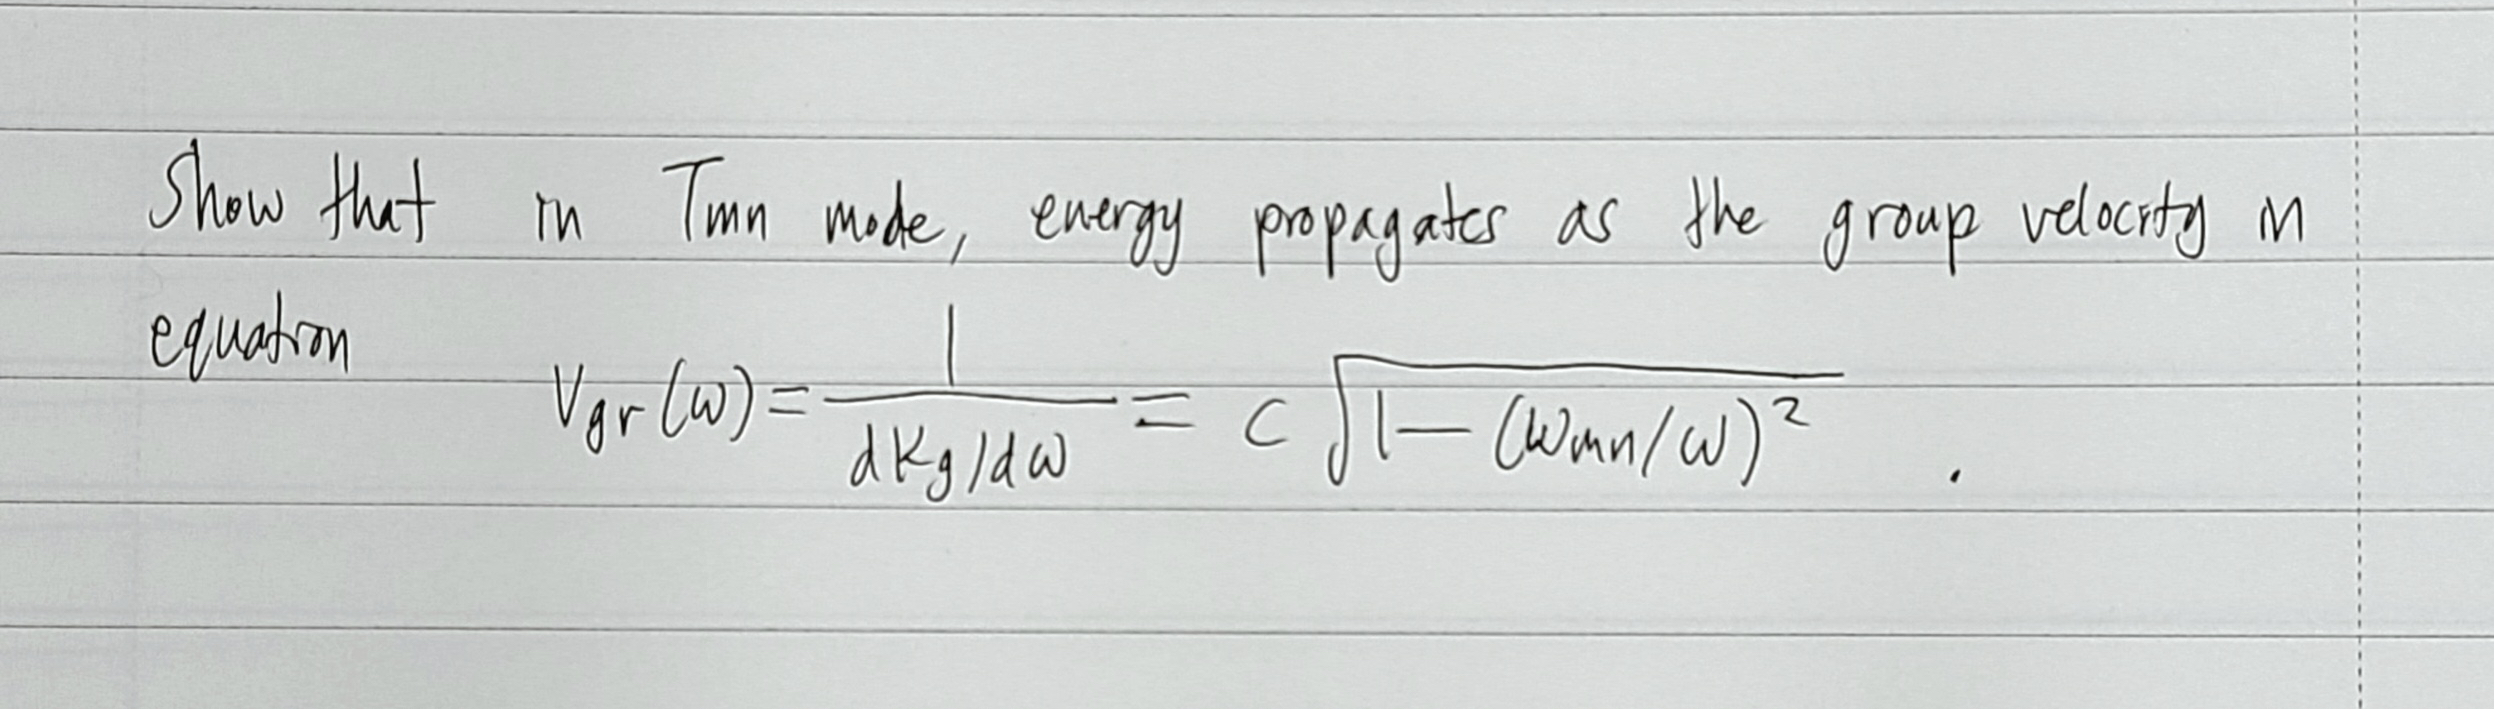 Show that in Tmn mode, energy propagates as the group velocity in
equation Vgr(ω) = 1/(dKg/dω) = c √(1 − (ωmn/ω)²) .